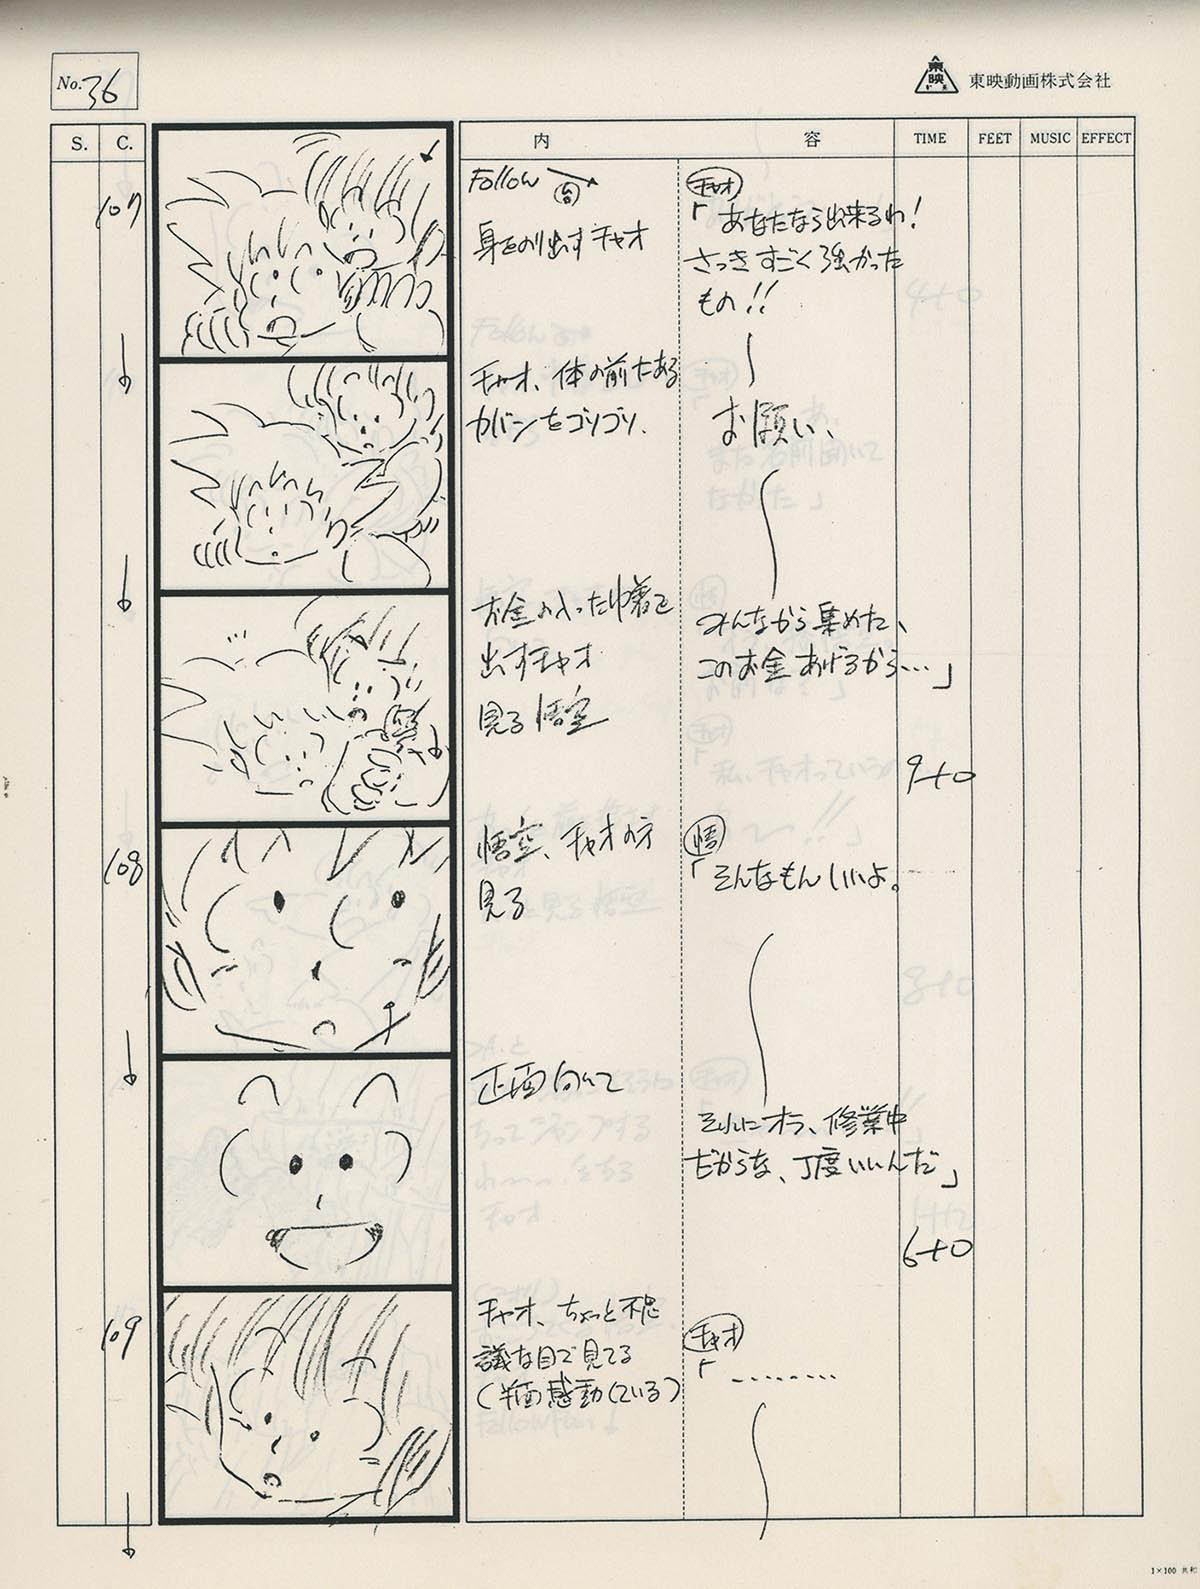 No. 36
東映
東映動画株式会社
S. C. 内 容 TIME FEET MUSIC EFFECT
107
Follow
身をのり出すチャオ
チャオ
「あなたなら出来るわ!
さっきすごく強かった
もの!!
チャオ、体の前にある
カバンをゴソゴソ.
お願い、
お金の入った巾着を
出すチャオ
見る悟空
みんなから集めた、
このお金あげるから…」
9+0
108
悟空、チャオの方
見る
悟
「そんなもんいいよ。
正面向いて
それにオラ、修業中
だからな、丁度いいんだ」
6+0
109
チャオ、ちょっと不思
議な目で見てる
(半面感動している)
チャオ
「………
1×100